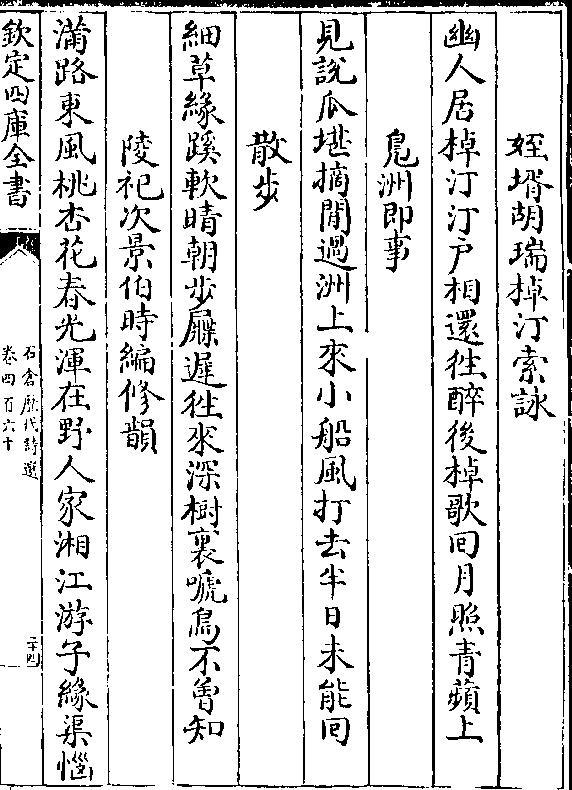 姪壻胡瑞掉汀索詠
幽人居掉汀汀户相還徃醉後棹歌回月照青蘋上
鳬洲即事
見説瓜堪摘閒過洲上來小船風打去半日未能回
散步
細草緣蹊軟晴朝步屧遲徃來深樹裏嗁鳥不曽知
陵祀次景伯時編修韻
滿路東風桃杏花春光渾在野人家湘江游子緣渠惱
欽定四庫全書
石倉歷代詩選
卷四百六十
二十四